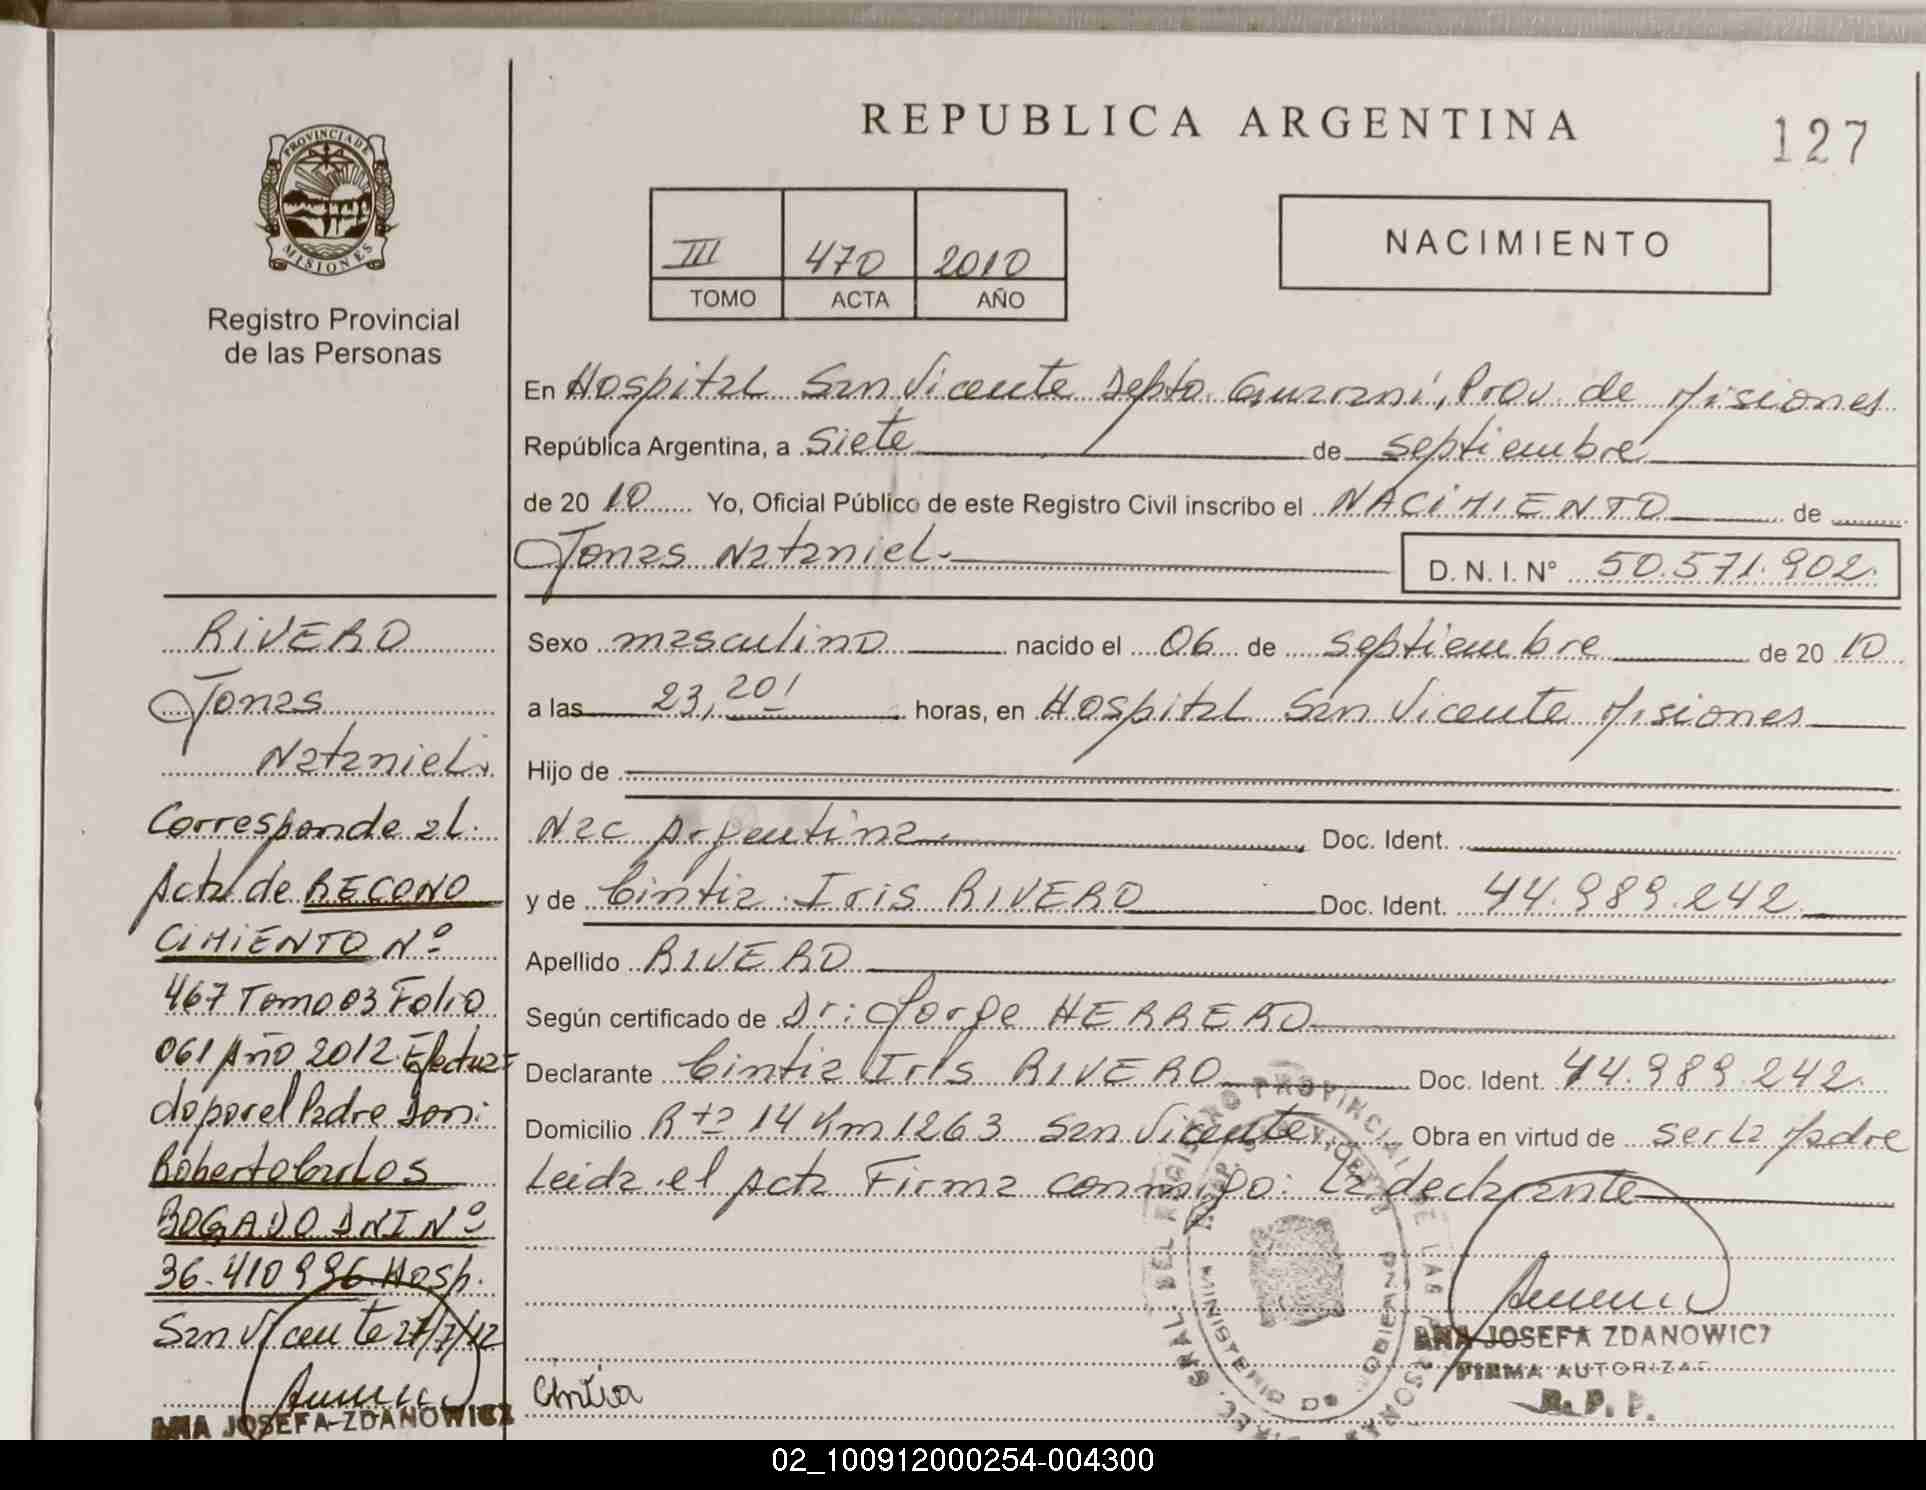 REPUBLICA ARGENTINA
127
PROVINCIA DE
MISIONES
Registro Provincial
de las Personas
III 470 2010
TOMO ACTA AÑO
NACIMIENTO
En Hospital San Vicente Depto. Guarani, Prov. de Misiones
República Argentina, a Siete de septiembre
de 20 10 Yo, Oficial Público de este Registro Civil inscribo el NACIMIENTO de
Jonas Nataniel.
D. N. I. Nº 50.571.902.
Sexo masculino nacido el 06 de septiembre de 20 10
a las 23,20' horas, en Hospital San Vicente Misiones
Hijo de
Nac Argentina Doc. Ident.
y de Cintia Iris RIVERO Doc. Ident. 44.989.242
Apellido RIVERO
Según certificado de Dr: Jorge HERRERO
Declarante Cintia Iris RIVERO Doc. Ident. 44.989.242.
Domicilio Rta 14 Km 1263 San Vicente Obra en virtud de ser la Madre
Leida el Acta Firma conmigo: La declarante
RIVERO
Jonas
Nataniel.
Corresponde al
Acta de RECONO
CIMIENTO Nº
467 Tomo 03 Folio
061 Año 2012 Efectua
do por el Padre Don:
Roberto Carlos
BOGADO DNI Nº
36.410996 Hosp.
San Vicente 27/7/12
ANA JOSEFA ZDANOWICZ
Cintia
ANA JOSEFA ZDANOWICZ
FIRMA AUTORIZAD
R. P. P.
02_100912000254-004300